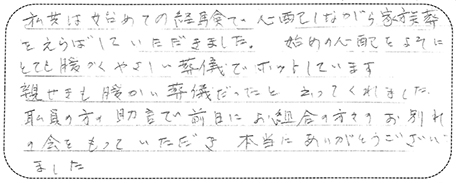 私共は始めての経験で心配しながら家族葬
をえらばしていただきました。 始めの心配をよそに
とても暖かくやさしい葬儀でホットしています
親せきも暖かい葬儀だったと 云ってくれました
職員の方の助言で前日にお組合の方々のお別れ
の会をもっていただき 本当にありがとうござい
ました